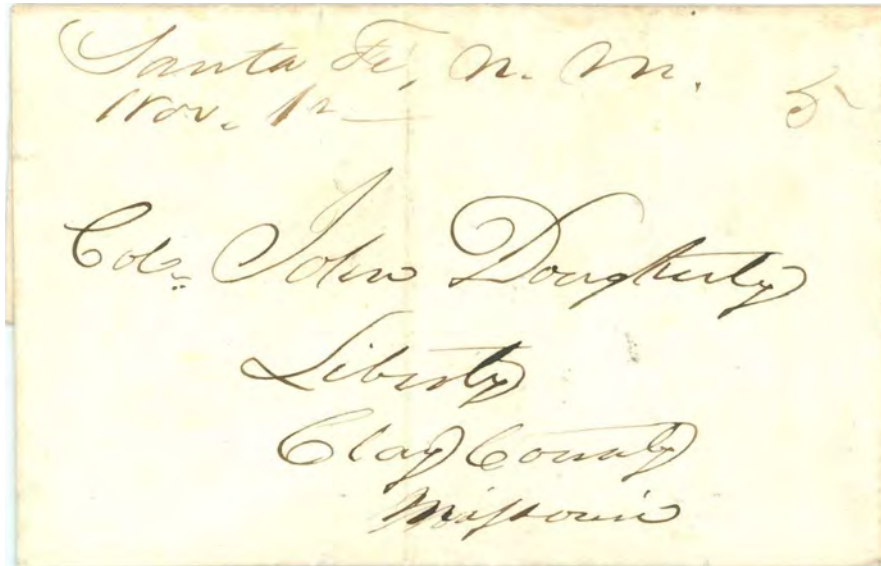 Santa Fe, N. M.
Nov. 12 5
Col. John Dougherty
Liberty
Clay County
Missouri